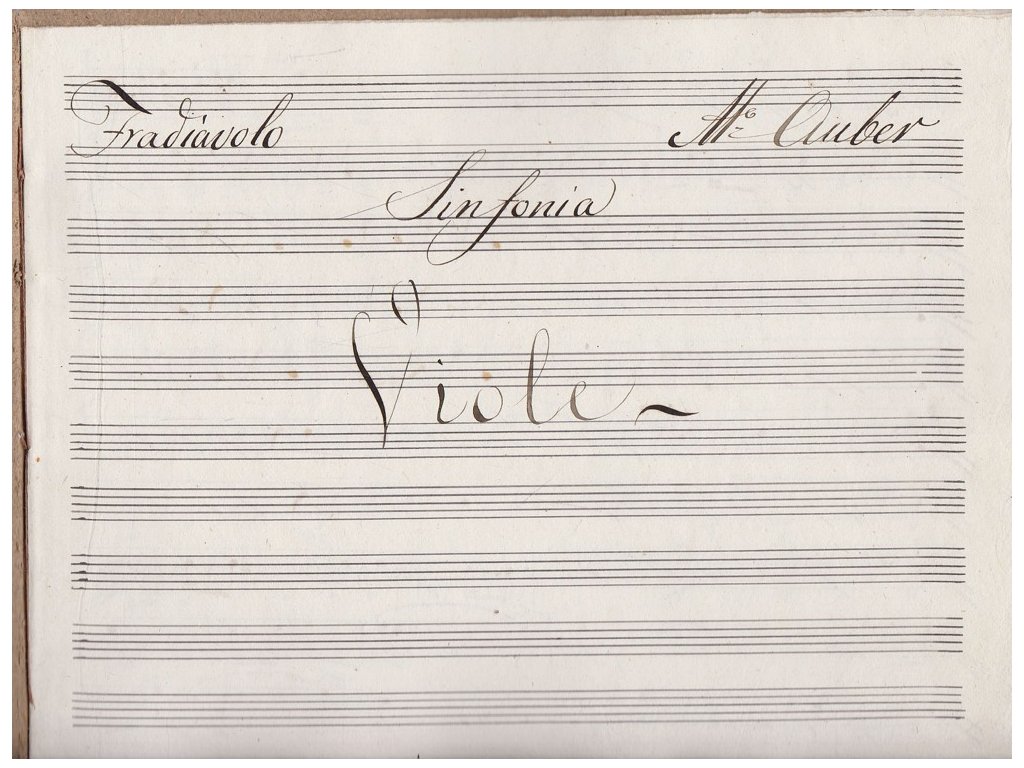 Fradiavolo
Mº Auber
Sinfonia
Viole